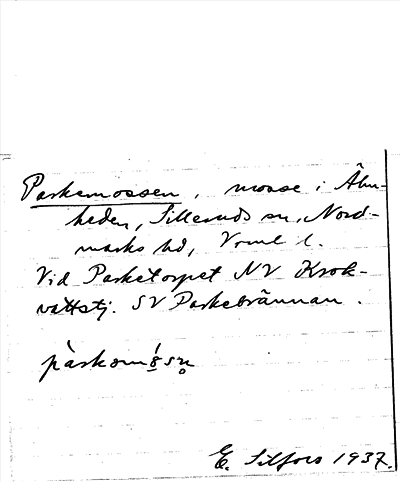 Parkemossen, mosse i Ålm-
heden, Silleruds sn, Nord-
marks hd, Vrml l.
Vid Parketorpet NV Krok-
vattstj. SV Parkebrännan.
E. Silfors 1937.